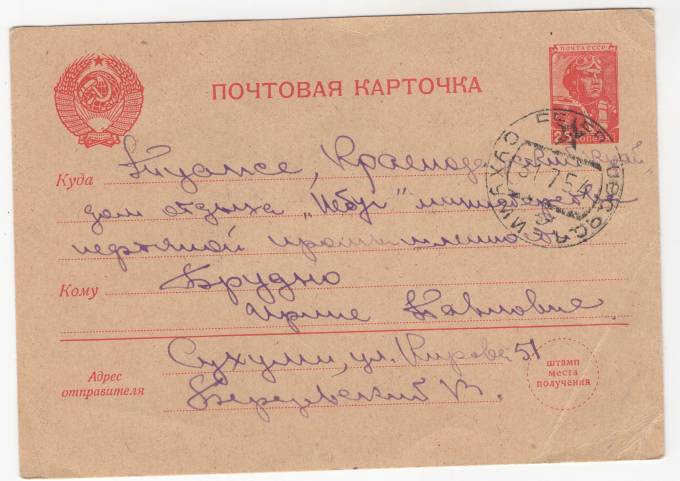 ПОЧТА СССР
ПОЧТОВАЯ КАРТОЧКА
25 КОПЕЕК
Куда Туапсе, Краснодарский край,
7 54
дом отдыха „Небуг"
нефтяной промышленности
Кому Брудно
Ирине Павловне
Адрес
отправителя
Сухуми, ул. Кирова 51
Березовский В.
штамп
места
получения